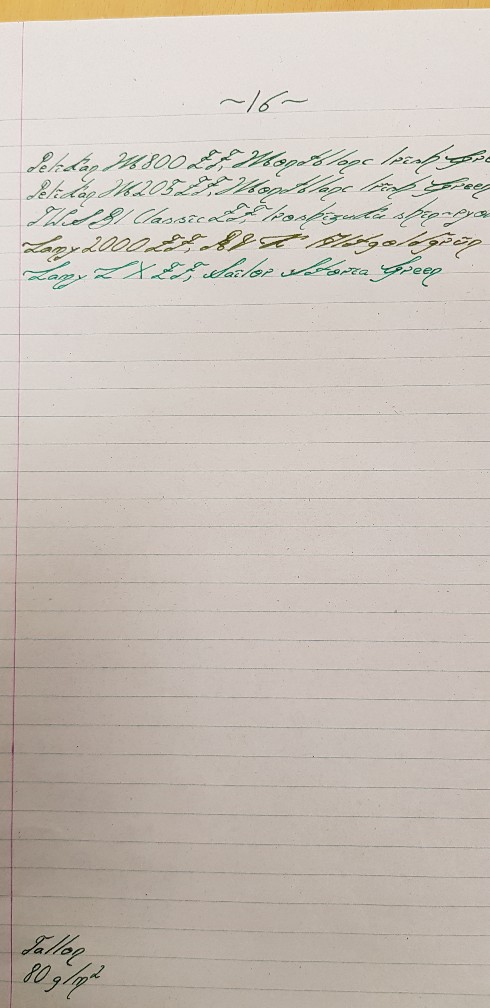 ~16~
Pelikan M800 EF, Montblanc Irish Gre
Pelikan M205 EF, Montblanc Irish Green
TWSBI Classic EF, Iroshizuku shin-ryo
Lamy 2000 EF, R&K Altgoldgrün
Lamy LX EF, Sailor Storia Green
Tallon
80 g/m²